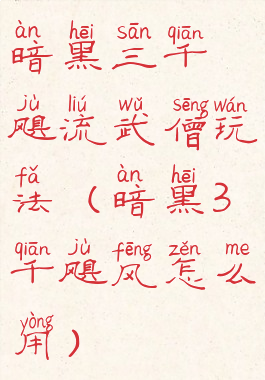 àn hēi sān qiān
暗黑三千
jù liú wǔ sēng wán
飓流武僧玩
fǎ àn hēi
法（暗黑3
qiān jù fēng zěn me
千飓风怎么
yòng
用）